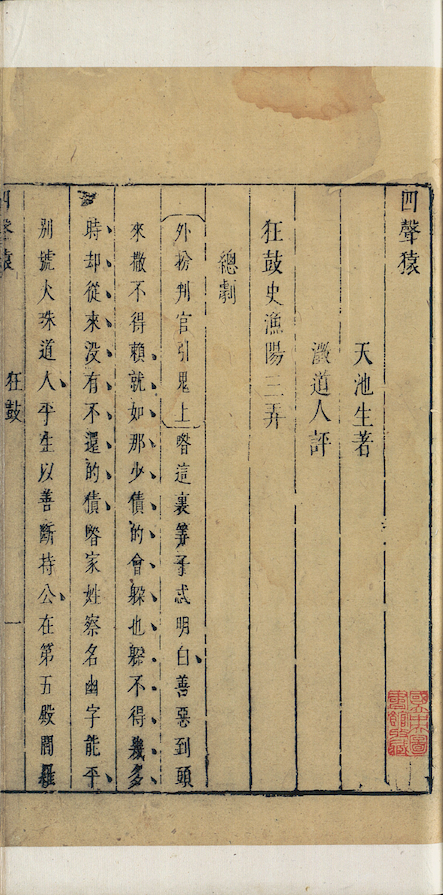 四聲猿
天池生著
澂道人評
狂鼓史漁陽三弄
總劇
〔外扮判官引鬼上〕喒這裏筭子忒明白善惡到頭
來撒不得賴就如那少債的會躲也躲不得幾多
時却從來沒有不還的債喒家姓察名幽字能平
別號火珠道人平生以善斷持公在第五殿閻羅
四聲猿 狂鼓 一
國立中央圖書館收藏